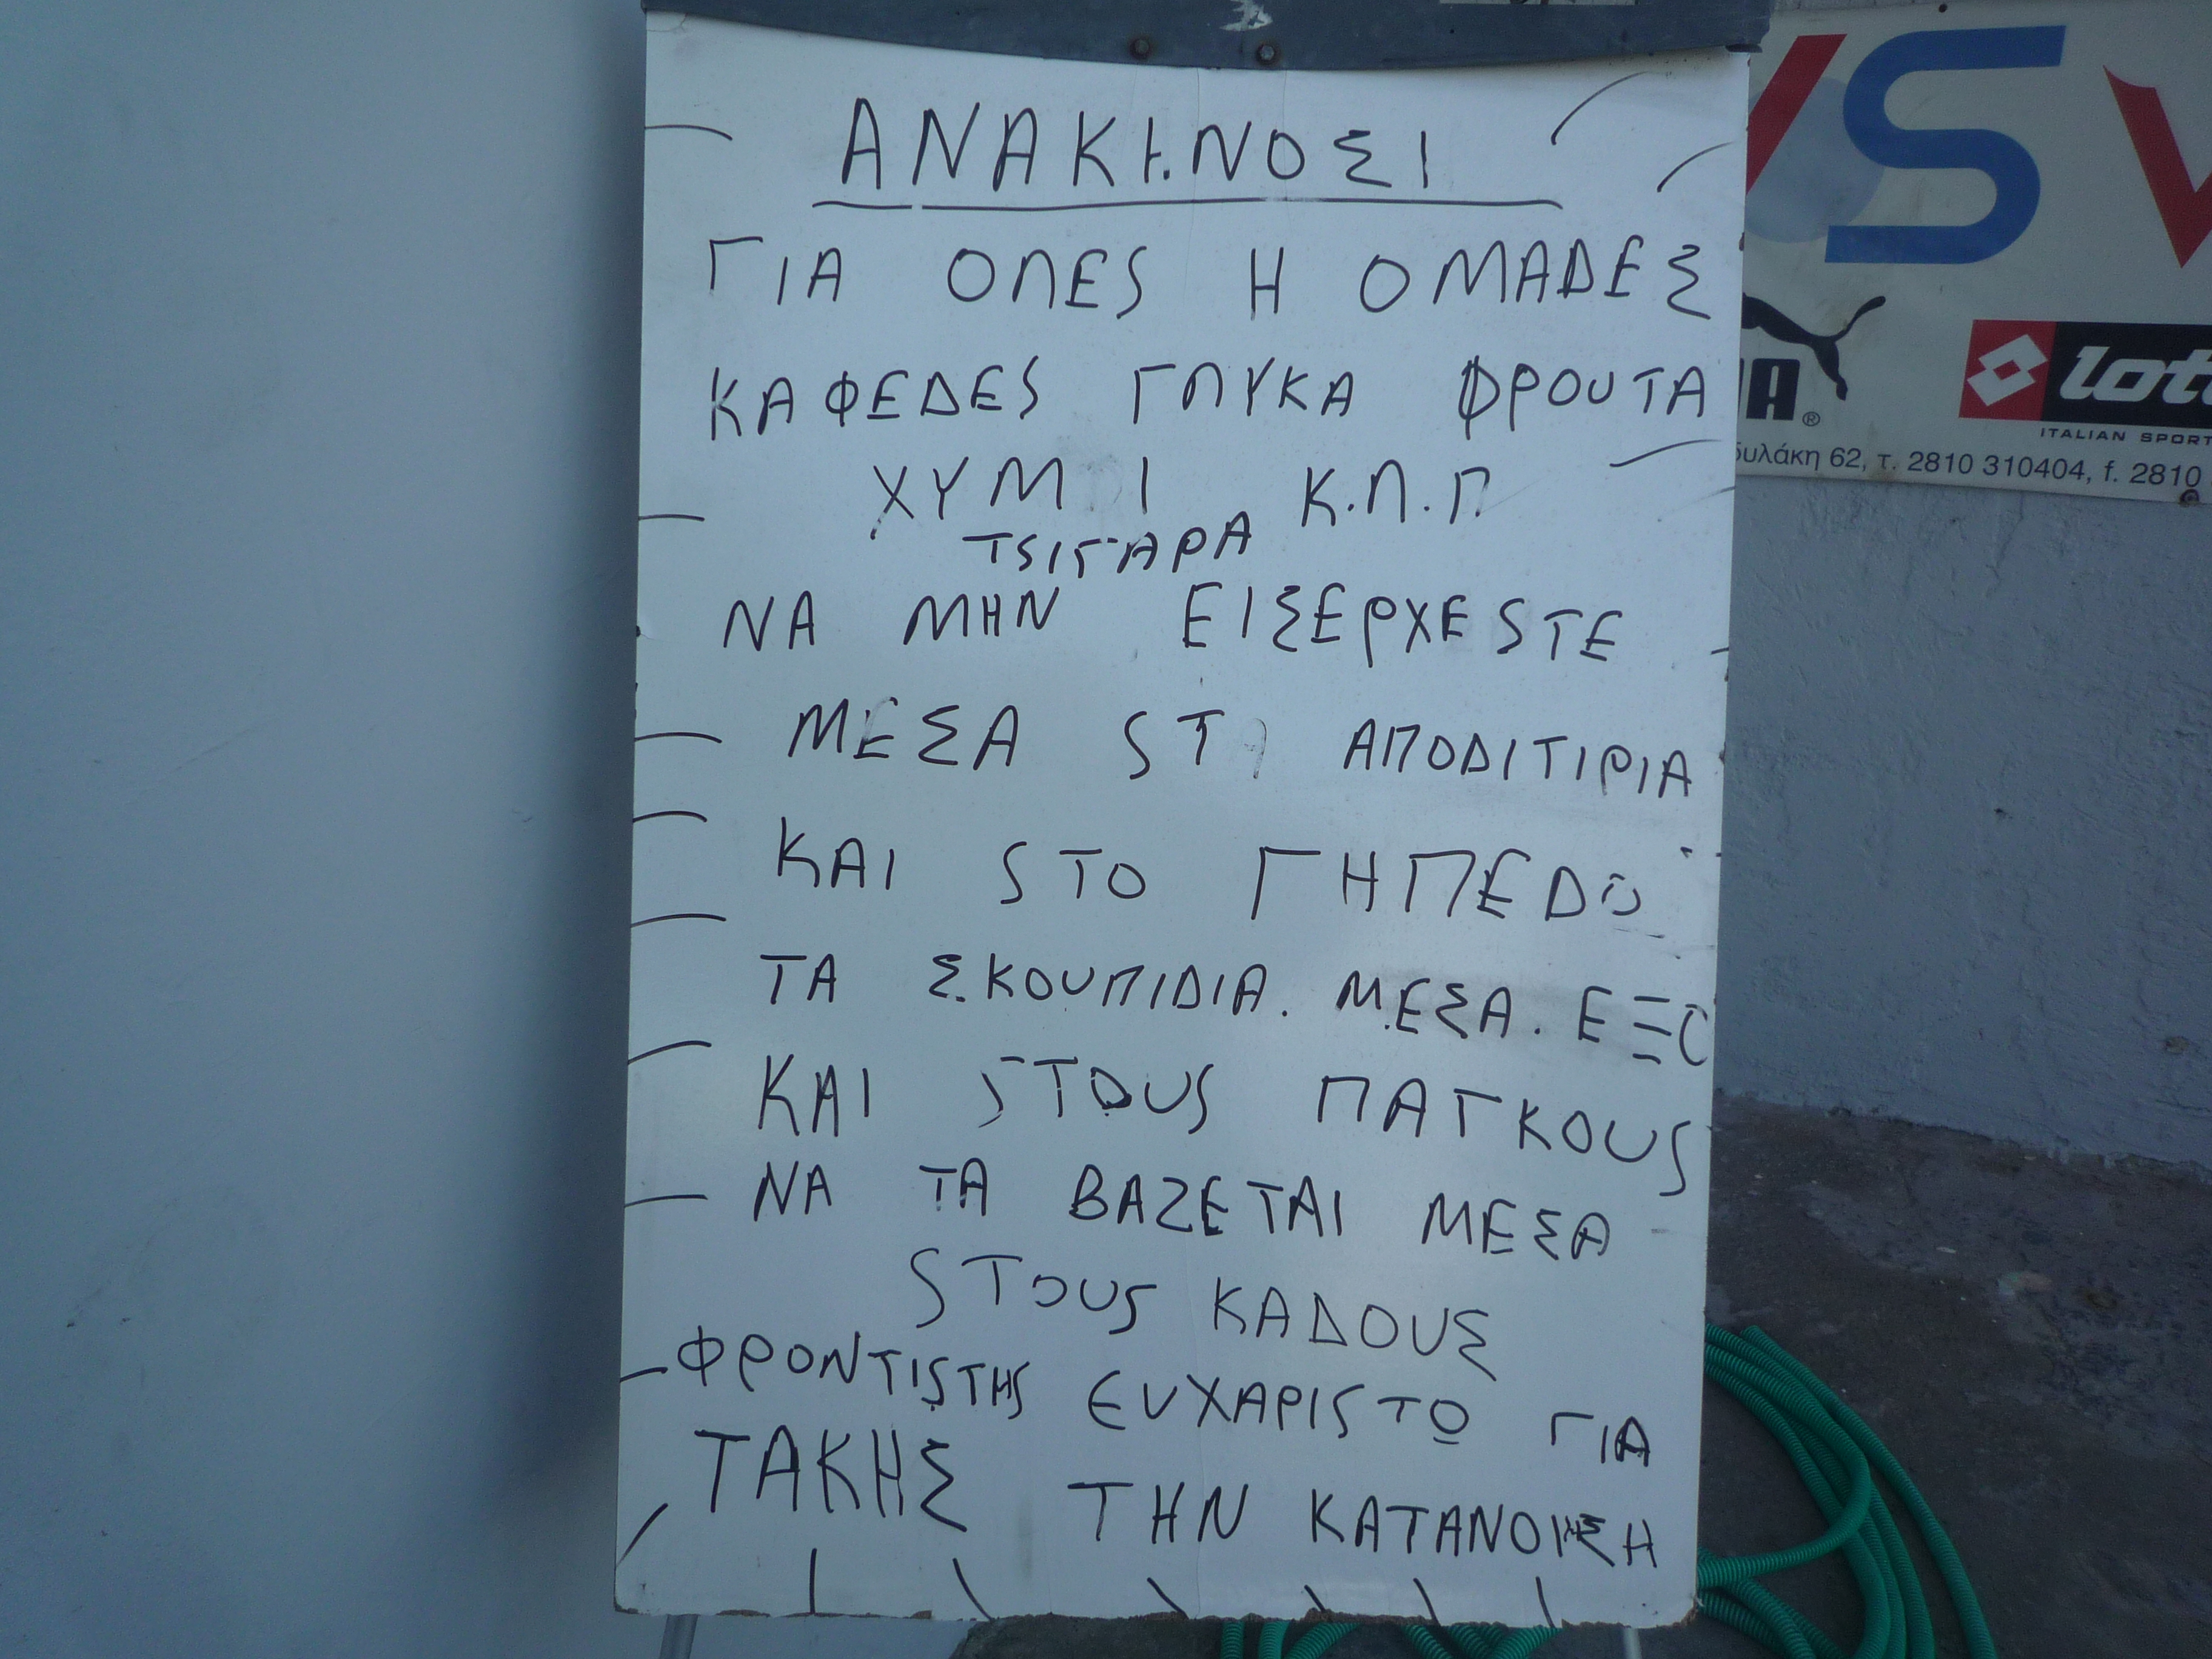 ΑΝΑΚΙ.ΝΟΣΙ
ΓΙΑ ΟΛΕS Η ΟΜΑΔΕΣ
ΚΑΦΕΔΕS ΓΛΥΚΑ ΦΡΟΥΤΑ
ΧΥΜΙ Κ.Λ.Π.
ΤSΙΓΑΡΑ
ΝΑ ΜΗΝ ΕΙΣΕΡΧΕSΤΕ
ΜΕΣΑ SΤΙ ΑΠΟΔΙΤΙΡΙΑ
ΚΑΙ SΤΟ ΓΗΠΕΔΟ
ΤΑ ΣΚΟΥΠΙΔΙΑ. ΜΕΣΑ. ΕΞΟ
ΚΑΙ SΤΟΥS ΠΑΓΚΟΥS
ΝΑ ΤΑ ΒΑΖΕΤΑΙ ΜΕΣΑ
SΤΟΥS ΚΑΔΟΥΣ
ΦΡΟΝΤΙSΤΗS ΕΥΧΑΡΙSΤΩ ΓΙΑ
ΤΑΚΗΣ ΤΗΝ ΚΑΤΑΝΟΗΣΗ
VS
lott
ITALIAN SPORT
62, τ. 2810 310404, f. 2810